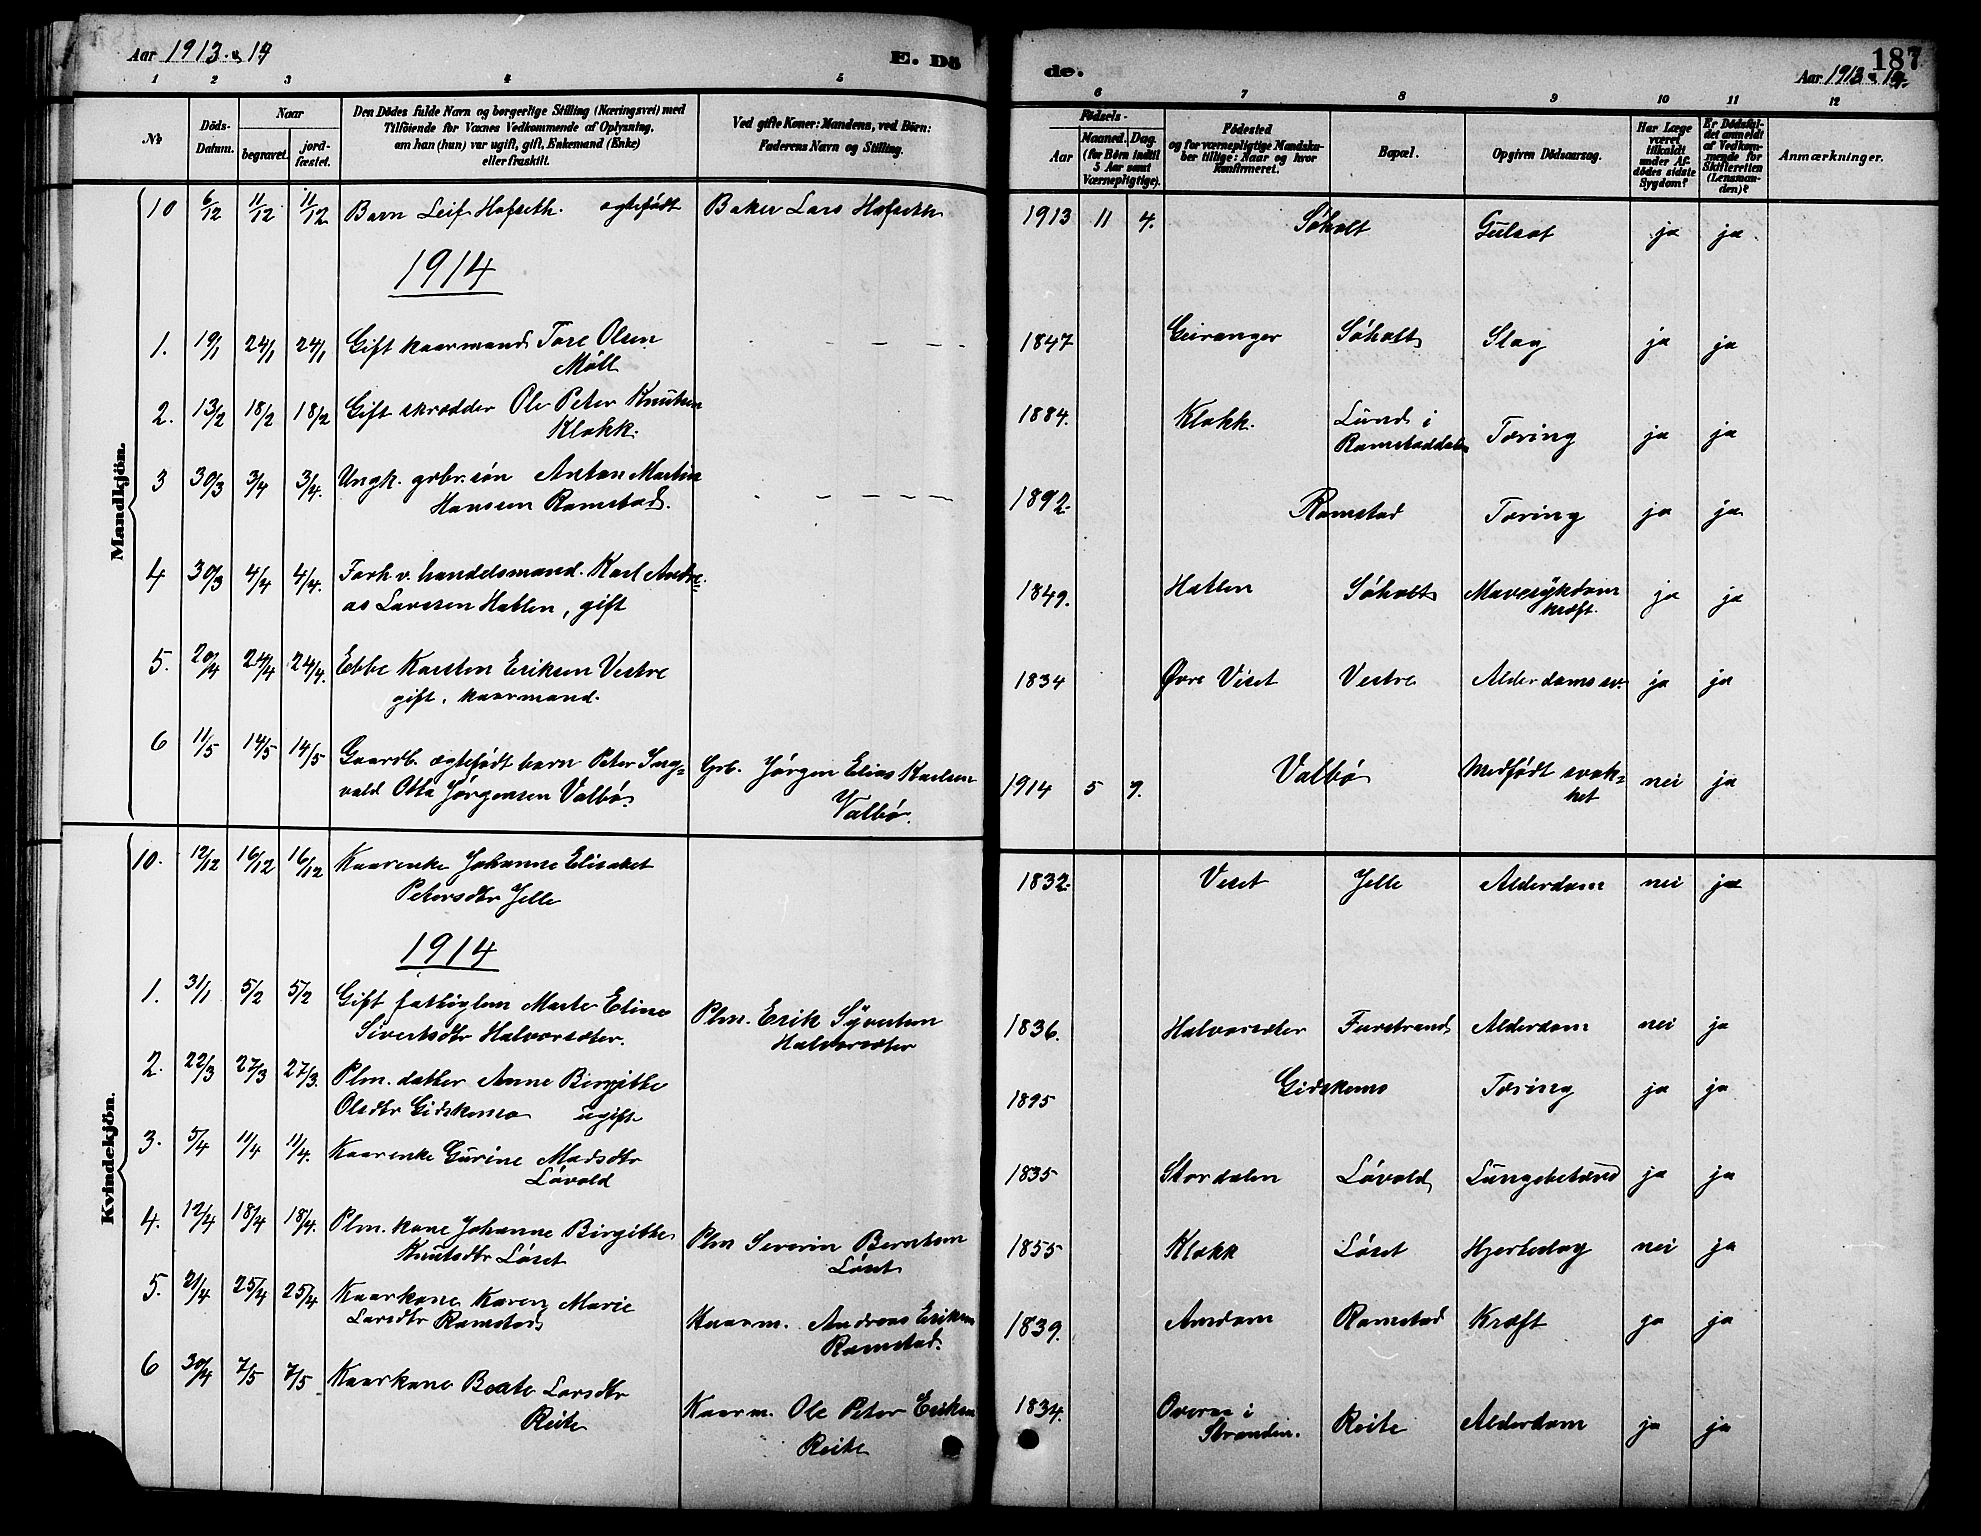 Aar 1913 & 14
E. Dö
1 2 3 4 5
No.
Döds-Datum.
Naar
begravet.
jord-fæstet.
Den Dödes fulde Navn og borgerlige Stilling (Næringsvei) med
Tilföiende for Voxnes Vedkommende af Oplysning,
om han (hun) var ugift, gift, Enkemand (Enke)
eller fraskilt.
Ved gifte Koner: Mandens, ved Börn:
Faderens Navn og Stilling.
de.
187
Aar 1913 & 14.
6 7 8 9 10 11 12
Födsels-
Aar
Maaned. Dag.
(for Börn indtil
5 Aar samt
Værnepligtige).
Födested
og for værnepligtige Mandska-
ber tillige: Naar og hvor
Konfirmeret.
Bopæl.
Opgiven Dödsaarsag.
Har Læge
været
tilkaldt
under Af-
dödes sidste
Sygdom?
Er Dödsfal-
det anmeldt
af Vedkom-
mende for
Skifteretten
(Lensman-
den)?
Anmærkninger.
Mandkjön.
10 6/12 11/12 11/12 Barn Leif Hofseth. ægtefødt Baker Lars Hofseth 1913 11 4. Søholt Gulsot ja ja
1914
1. 19/1 24/1 24/1 Gift kaarmand Tore Olsen 1847 Geiranger Søholt Slag ja ja
Møll
2. 13/2 18/2 18/2 Gift skrædder Ole Peter Knutsen 1884. Klokk. Lund i Tæring ja ja
Klokk. Ramstaddalen
3 30/3 3/4 3/4. Ungk. gbr. søn Anton Martin 1892. Ramstad Tæring ja ja
Hansen Ramstad.
4 30/3 4/4 4/4. Forh v. handelsmand. Karl Andre- 1849. Hatlen Søholt Mavesykdom ja ja
as Larsen Hatlen, gift kræft.
5. 20/4 24/4 24/4. Ebbe Karsten Eriksen Vestre 1834 Øvre Viset Vestre Alderdomssv. ja ja
gift, kaarmand.
6 11/5 14/5 14/5 Gaardb. ægtefødt barn Peter Ing- Gbr. Jørgen Elias Karlsen 1914 5 9. Valbø Medfødt svak- nei ja
vald Otto Jørgensen Valbø. Valbø. het
Kvindekjön.
10. 12/12 16/12 16/12 Kaarenke Johanne Elisabet 1832. Viset Jelle Alderdom nei ja
Petersdtr Jelle
1914
1. 31/1 5/2 5/2 Gift fattiglem Marte Eline Plm. Erik Syvertsen 1836. Halvorsæter Furstrand Alderdom nei ja
Sivertsdtr Halvorsæter. Halvorsæter
2. 22/3 27/3 27/3. Plm. datter Anne Birgitte 1895 Gidskemo Tæring ja ja
Olsdtr Gidskemo ugift
3. 5/4 11/4 11/4. Kaarenke Gurine Madsdtr 1835 Stordalen Løvold Lungebetænd ja ja
Løvold
4. 12/4 18/4 18/4. Plm. kone Johanne Birgitte Plm Severin Berntsen 1855 Klokk Løset Hjerteslag nei ja
Knutsdtr Løset Løset
5. 21/4 25/4 25/4 Kaarkone Karen Marie Kaarm. Andreas Eriksen 1839. Amdam Ramstad Kræft ja ja
Larsdtr Ramstad Ramstad.
6 30/4 7/5 7/5 Kaarkone Beate Larsdtr Kaarm. Ole Peter Eriksen 1834. Overaa i Reite Alderdom ja ja
Reite Reite Stranden.